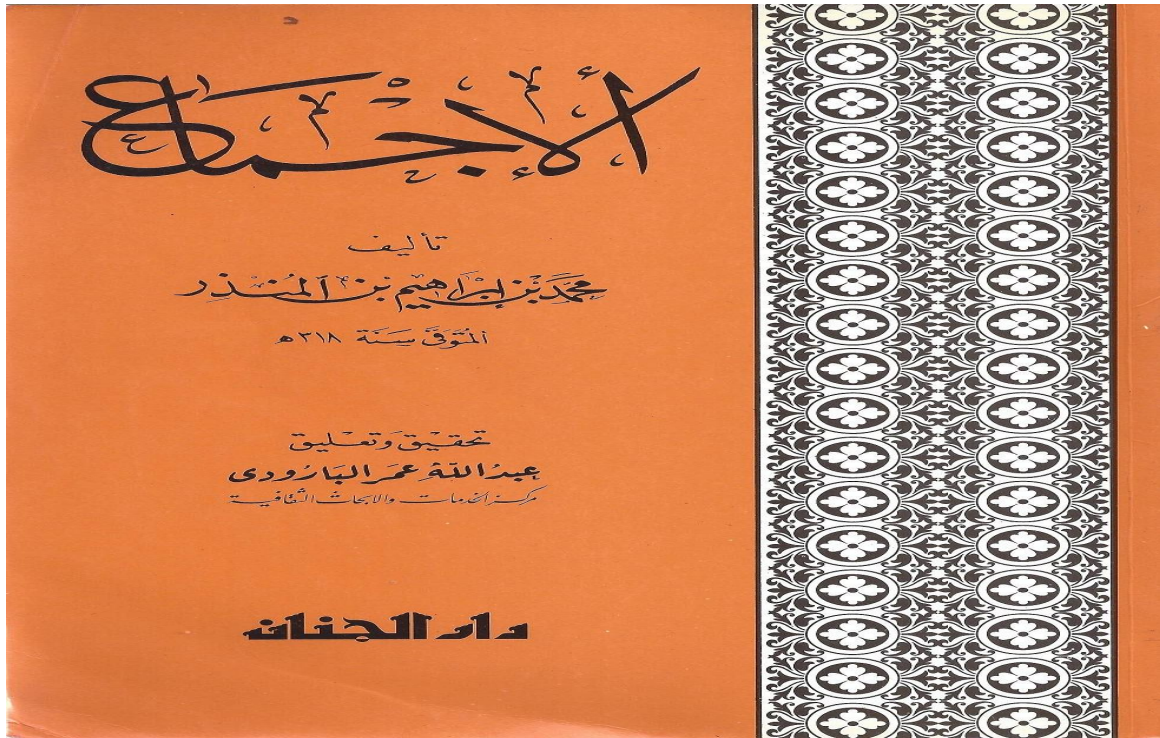 الإجماع
تأليف
محمد بن إبراهيم بن المنذر
المتوفى سنة ٣١٨ هـ
تحقيق وتعليق
عبد الله عمر البارودي
مركز الخدمات والأبحاث الثقافية
دار الجنان